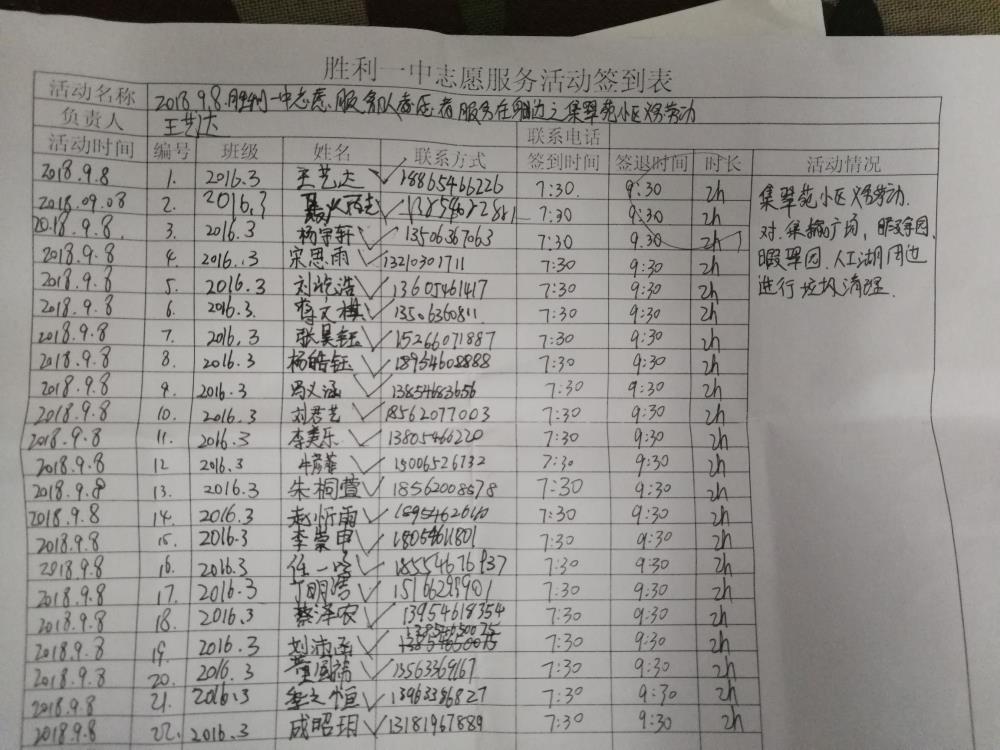 胜利一中志愿服务活动签到表
活动名称 2018.9.8.胜利一中志愿服务队志愿者服务在身边之集翠苑小区义务劳动
负责人 王艺达 联系电话
活动时间 编号 班级 姓名 联系方式 签到时间 签退时间 时长 活动情况
2018.9.8 1. 2016.3 王艺达 18865466226 7:30. 9:30 2h 集翠苑小区义务劳动.
2018.09.08 2. 2016.3 7:30 9:30 2h 对 广场,
2018.9.8. 3. 2016.3 杨宇轩 13506367063 7:30 9.30 2h 暇翠园、人工湖周边
2018.9.8 4. 2016.3 宋思雨 13210301711 7:30 9:30 2h 进行垃圾清理.
2018.9.8 5. 2016.3 刘屹浩 13605461417 7:30 9:30 2h
2018.9.8 6. 2016.3. 蒋文棋 13506360811. 7:30 9:30 2h
2018.9.8 7. 2016.3 张昊钰 15266071887 7:30 9:30 2h
2018.9.8 8. 2016.3 杨皓钰 18954608888 7:30 9:30 2h
2018.9.8 9. 2016.3 冯义涵 13854683656 7:30 9:30 2h
2018.9.8 10. 2016.3 刘君艺 18562077003 7:30 9:30 2h
2018.9.8 11. 2016.3 李美乐 13805466220 7:30 9:30 2h
2018.9.8 12 2016.3 15006526732 7:30 9:30 2h
2018.9.8 13. 2016.3 朱桐萱 18562008578 7:30 9:30 2h
2018.9.8 14. 2016.3 赵忻雨 7:30 9:30 2h
2018.9.8 15. 2016.3 李崇申 18054611801 7:30 9:30 2h
2018.9.8 16. 2016.3 任一鸣 18554676937 7:30 9:30 2h
2018.9.8 17. 2016.3 丁明湾 7:30 9:30 2h
2018.9.8 18. 2016.3 蔡泽农 13954618354 7:30 9:30 2h
13854650075
2018.9.8 19. 2016.3 刘沛函 7:30 9:30 2h
2018.9.8 20. 2016.3 董国福 13563369167 7:30 9:30 2h
2018.9.8 21. 2016.3 李之恒 13963386827 7:30 9:30 2h
2018.9.8 22. 2016.3 成昭玥 13181967889 7:30 9:30 2h